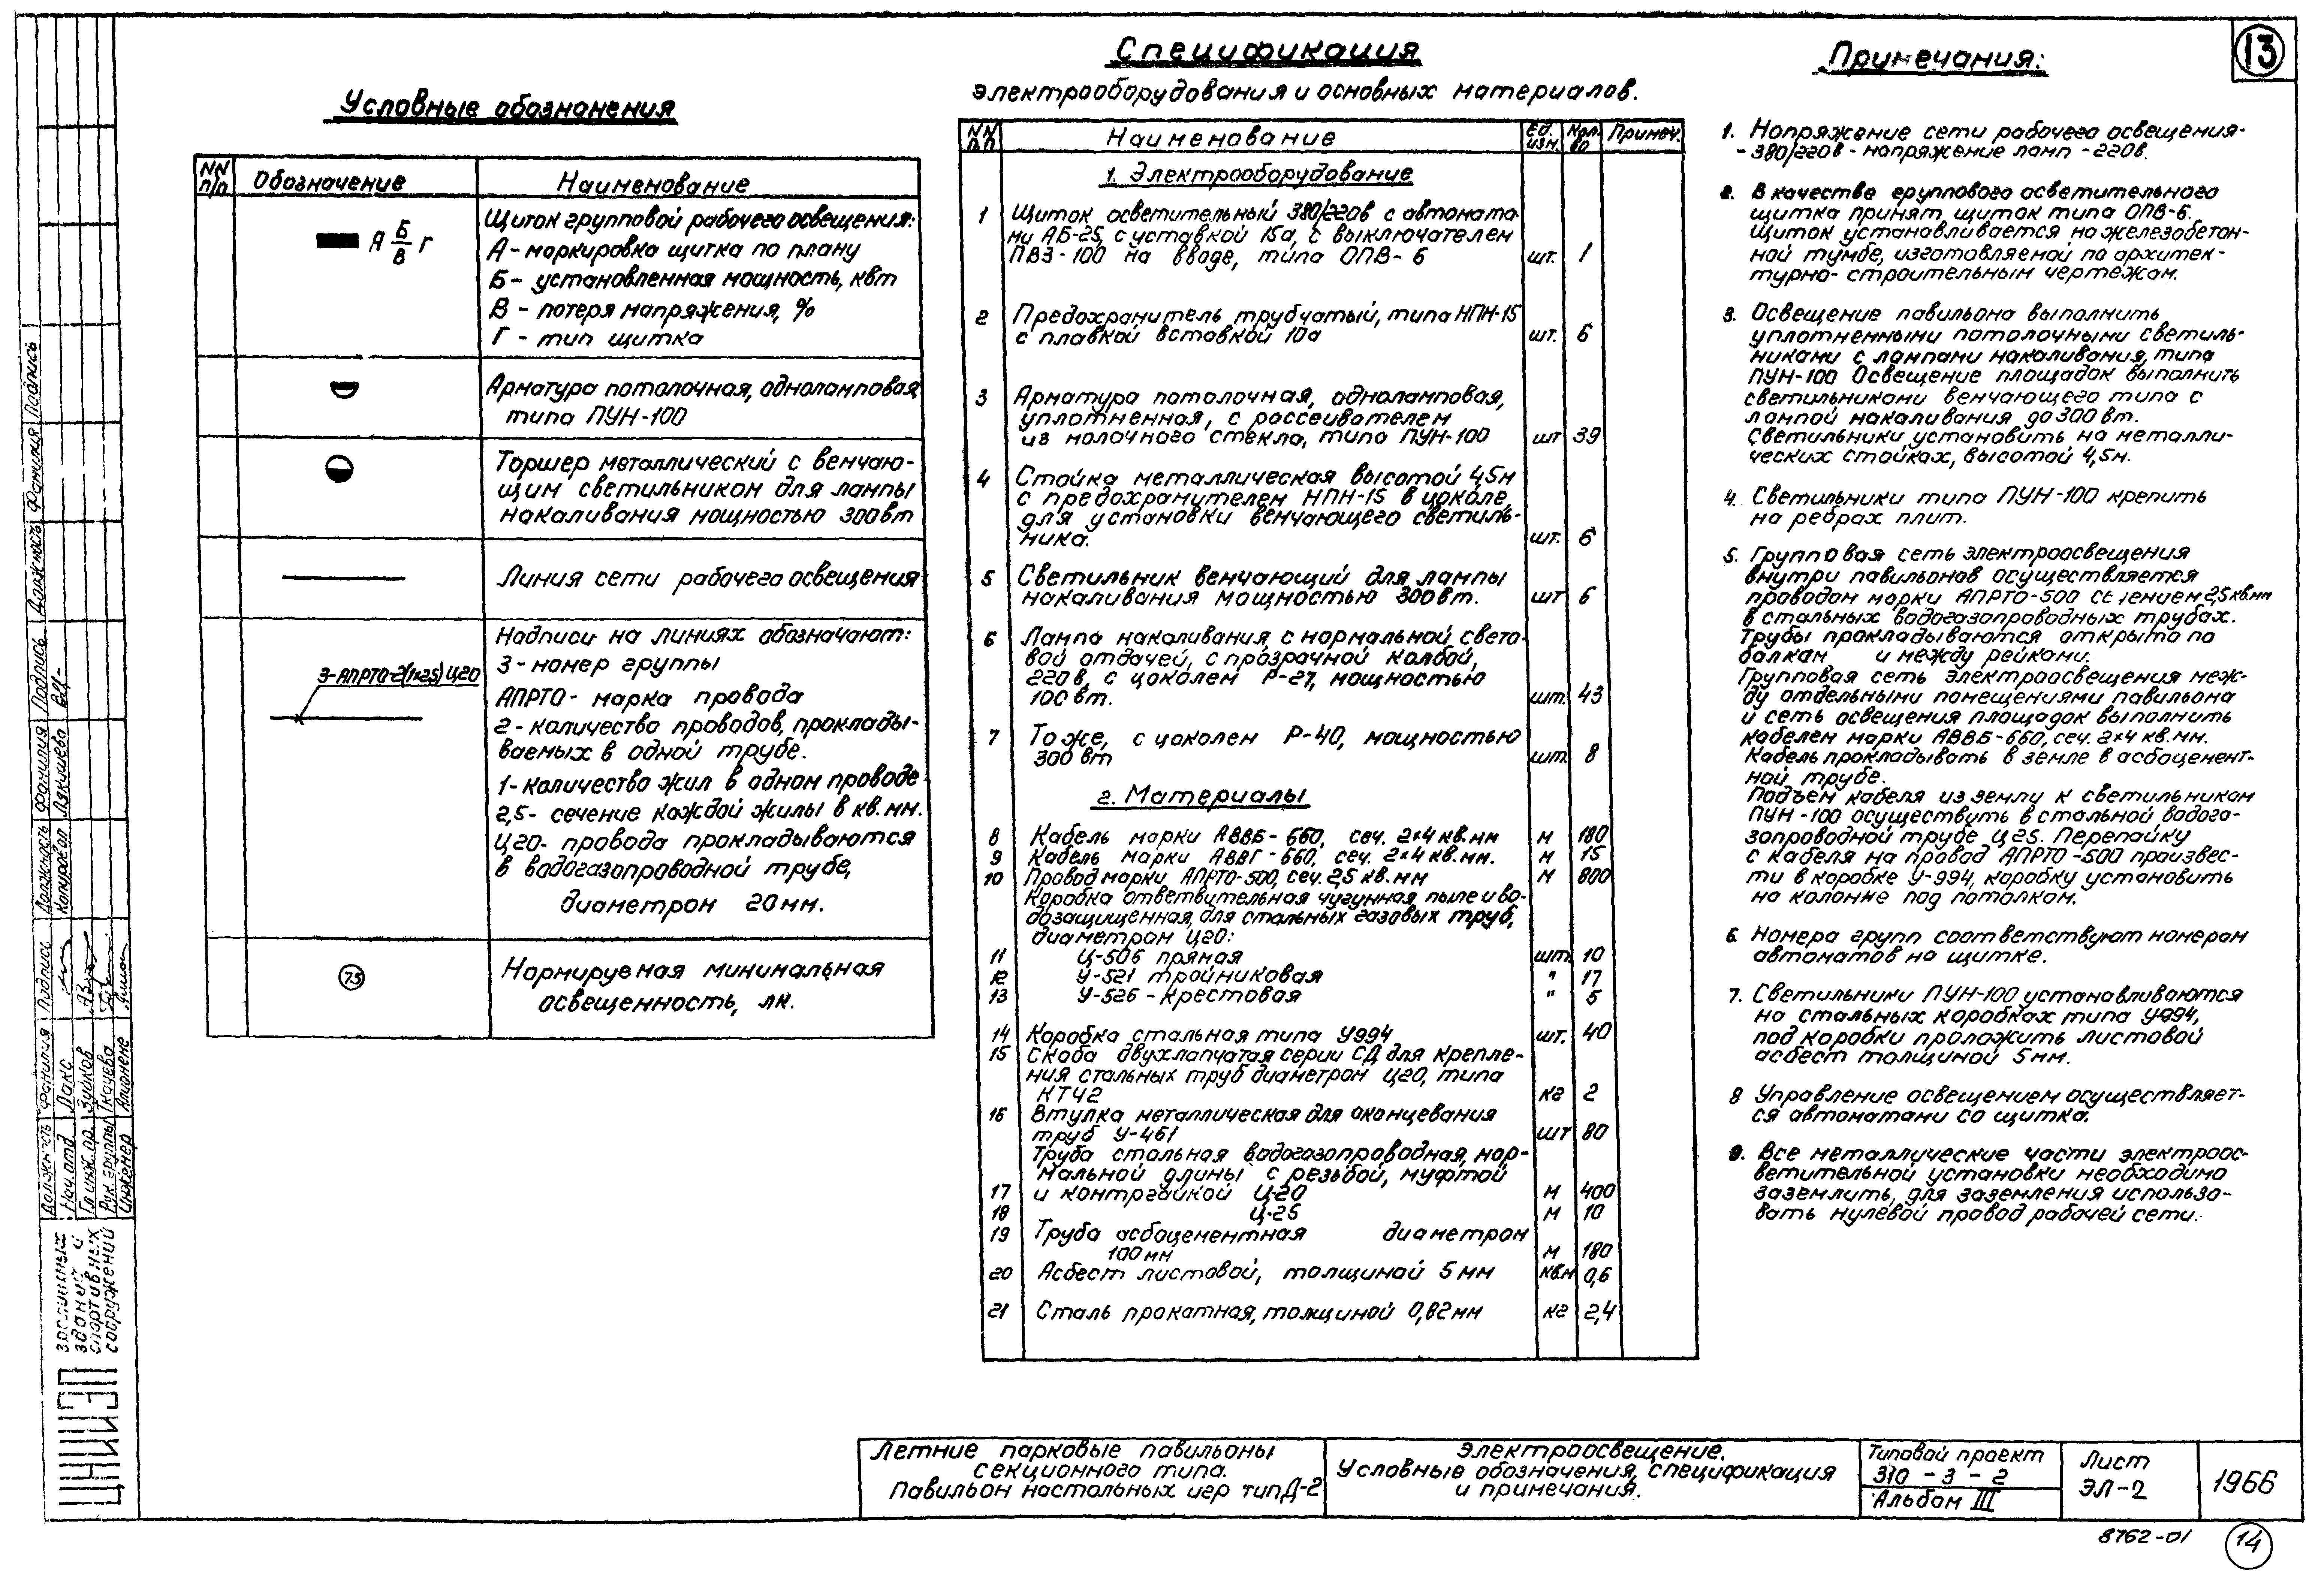 13
Условные обозначения
NN п/п Обозначение Наименование
А Б/В Г
Щиток групповой рабочего освещения:
А - маркировка щитка по плану
Б - установленная мощность, квт
В - потеря напряжения, %
Г - тип щитка
Арматура потолочная, одноламповая,
типа ПУН-100
Торшер металлический с венчаю-
щим светильником для лампы
накаливания мощностью 300 вт
Линия сети рабочего освещения
3-АПРТО-2(1×2,5) Ц20
Надписи на линиях обозначают:
3 - номер группы
АПРТО - марка провода
2 - количество проводов, проклады-
ваемых в одной трубе.
1 - количество жил в одном проводе
2,5 - сечение каждой жилы в кв. мм.
Ц20 - провода прокладываются
в водогазопроводной трубе,
диаметром 20 мм.
75
Нормируемая минимальная
освещенность, лк.
Спецификация
электрооборудования и основных материалов.
NN п/п Наименование Ед. изм. Кол. во Примеч.
1. Электрооборудование
1 Щиток осветительный 380/220в с автомата-
ми АБ-25, с уставкой 15а, с выключателем
ПВЗ-100 на вводе, типа ОПВ-6 шт. 1
2 Предохранитель трубчатый, типа НПН-15
с плавкой вставкой 10а шт. 6
3 Арматура потолочная, одноламповая,
уплотненная, с рассеивателем
из молочного стекла, типа ПУН-100 шт 39
4 Стойка металлическая высотой 4,5м
с предохранителем НПН-15 в цоколе,
для установки венчающего светиль-
ника. шт. 6
5 Светильник венчающий для лампы
накаливания мощностью 300 вт. шт 6
6 Лампа накаливания, с нормальной свето-
вой отдачей, с прозрачной колбой,
220в, с цоколем Р-27, мощностью
100 вт. шт. 43
7 То же, с цоколем Р-40, мощностью
300 вт шт. 8
2. Материалы
8 Кабель марки АВВБ-660, сеч. 2×4 кв.мм м 180
9 Кабель марки АВВГ-660, сеч. 2×4 кв.мм. м 15
10 Провод марки АПРТО-500, сеч. 2,5 кв.мм м 800
Коробка ответвительная чугунная пыле и во-
дозащищенная, для стальных газовых труб,
диаметром Ц20:
11 Ц-506 прямая шт. 10
12 У-521 тройниковая " 17
13 У-526 - крестовая " 5
14 Коробка стальная типа У994 шт. 40
15 Скоба двухлапчатая серии СД для крепле-
ния стальных труб диаметром Ц20, типа
КТ42 кг 2
16 Втулка металлическая для оконцевания
труб У-461 шт 80
Труба стальная водогазопроводная, нор-
мальной длины с резьбой, муфтой
17 и контргайкой Ц-20 м 400
18 Ц-25 м 10
19 Труба асбоцементная диаметром
100 мм м 180
20 Асбест листовой, толщиной 5 мм кв.м 0,6
21 Сталь прокатная, толщиной 0,82 мм кг 2,4
Примечания:
1. Напряжение сети рабочего освещения-
- 380/220в - напряжение ламп - 220в.
2. В качестве группового осветительного
щитка принят щиток типа ОПВ-6.
Щиток устанавливается на железобетон-
ной тумбе, изготовляемой по архитек-
турно-строительным чертежам.
3. Освещение павильона выполнить
уплотненными потолочными светиль-
никами с лампами накаливания, типа
ПУН-100 Освещение площадок выполнить
светильниками венчающего типа с
лампой накаливания до 300 вт.
Светильники установить на металли-
ческих стойках, высотой 4,5м.
4. Светильники типа ПУН-100 крепить
на ребрах плит.
5. Групповая сеть электроосвещения
внутри павильонов осуществляется
проводом марки АПРТО-500 сечением 2,5 кв.мм
в стальных водогазопроводных трубах.
Трубы прокладываются открыто по
балкам и между рейками.
Групповая сеть электроосвещения меж-
ду отдельными помещениями павильона
и сеть освещения площадок выполнить
кабелем марки АВВБ-660, сеч. 2×4 кв.мм.
Кабель прокладывать в земле в асбоцемент-
ной трубе.
Подъем кабеля из земли к светильникам
ПУН-100 осуществить в стальной водога-
зопроводной трубе Ц25. Перепайку
с кабеля на провод АПРТО-500 произвес-
ти в коробке У-994, коробку установить
на колонне под потолком.
6. Номера групп соответствуют номерам
автоматов на щитке.
7. Светильники ПУН-100 устанавливаются
на стальных коробках типа У994,
под коробки проложить листовой
асбест толщиной 5 мм.
8 Управление освещением осуществляет-
ся автоматами со щитка.
9. Все металлические части электроос-
ветительной установки необходимо
заземлить, для заземления использо-
вать нулевой провод рабочей сети.
Летние парковые павильоны
секционного типа.
Павильон настольных игр тип Д-2
Электроосвещение.
Условные обозначения, спецификация
и примечания.
Типовой проект
310-3-2
Альбом III
Лист
ЭЛ-2
1966
8762-01
14
Должность Фамилия Подпись Должность Фамилия Подпись Должность Фамилия Подпись
Нач. отд. Лакс
Гл. инж. пр. Зуйков
Рук. группы
Инженер
Копировал
ЦНИИЭП
зрелищных
зданий и
спортивных
сооружений